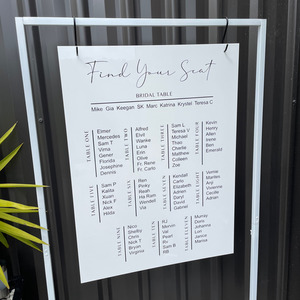 Find Your Seat
BRIDAL TABLE
Mike Gia Keegan SK Marc Katrina Krystel Teresa C
TABLE ONE
Elmer
Mercedes
Sam T
Virna
Gener
Florida
Josephine
Dennis
TABLE TWO
Alfred
Elvil
Wanke
Luna
Erin
Olive
Fr. Rene
Fr. Carlo
TABLE THREE
Sam L
Teresa V
Michael
Thao
Charlie
Matthew
Colleen
Zoe
TABLE FOUR
Kevin
Henry
Allen
Irene
Ben
Emerald
TABLE FIVE
Sam P
Kalita
Xuan
Nick F
Alex
Hilda
TABLE SIX
Ren
Pinky
Reah
Ha Ram
Wendell
Via
TABLE SEVEN
Kendall
Carlo
Elizabeth
Adrian
Daryl
David
Gabriel
TABLE EIGHT
Vamie
Marites
Ary
Vivienne
Cecille
Adrian
TABLE NINE
Nico
Shelby
Chris
Nick T
Bryan
Virginia
TABLE TEN
RJ
Mervin
Val
Pearl
Ru
Sam B
RB
TABLE ELEVEN
Murray
Doris
Johanna
Lon
Janice
Marisa